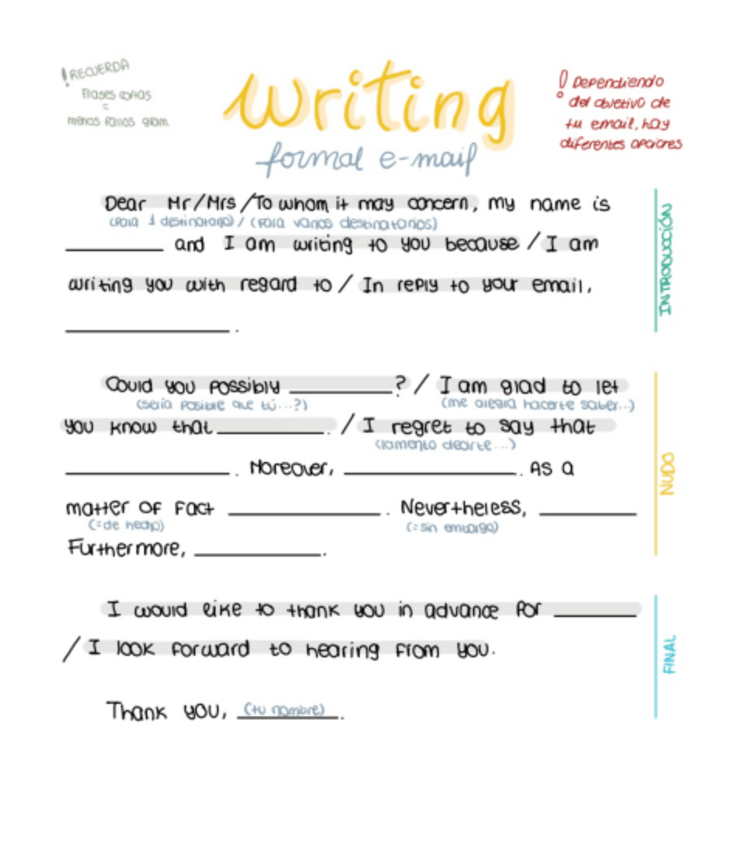 ! RECUERDA
Frases cortas
=
menos fallos gram.
writing
formal e-mail
! Dependiendo
del objetivo de
tu email, hay
diferentes opciones
Dear Mr/Mrs /To whom it may concern, my name is
(para 1 destinatario) / (para varios destinatarios)
________ and I am writing to you because / I am
writing you with regard to / In reply to your email,
________.
INTRODUCCIÓN
Could you possibly ________? / I am glad to let
(sería posible que tú...?) (me alegra hacerte saber...)
you know that ________. / I regret to say that
(lamento decirte...)
________. Moreover, ________. As a
matter of fact ________. Nevertheless, ________
(=de hecho) (=sin embargo)
Furthermore, ________.
NUDO
I would like to thank you in advance for ________
/ I look forward to hearing from you.
Thank you, (tu nombre).
FINAL